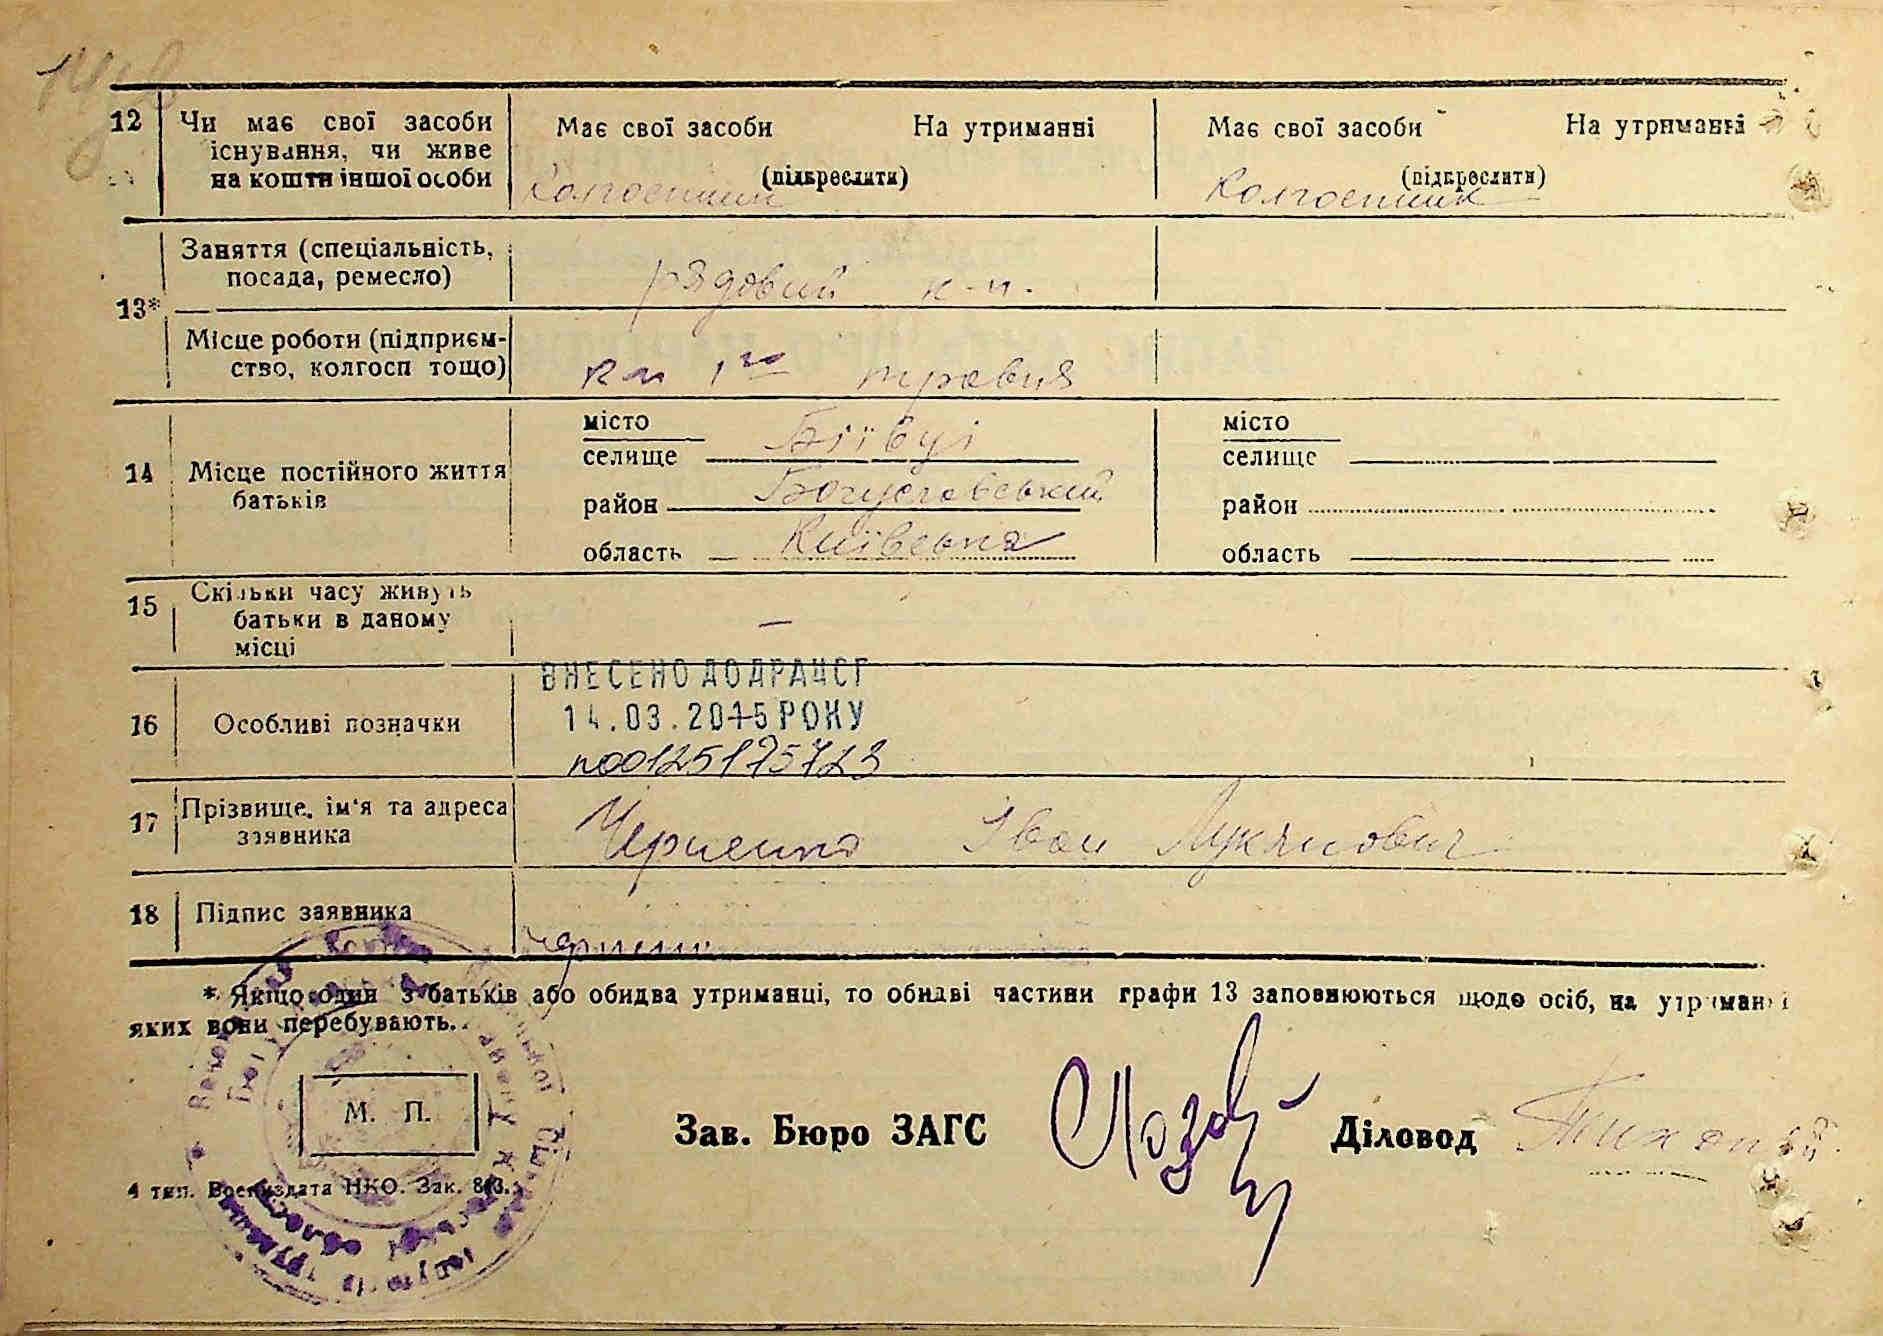 12 Чи має свої засоби існування, чи живе на кошти іншої особи
Має свої засоби На утриманні
(підкреслити)
Колгоспник
Має свої засоби На утриманні
(підкреслити)
Колгоспник
13* Заняття (спеціальність, посада, ремесло)
рядовий к-п.
Місце роботи (підприємство, колгосп тощо)
1го травня
14 Місце постійного життя батьків
місто
селище Біївці
район Богуславський
область Київська
місто
селище
район
область
15 Скільки часу живуть батьки в даному місці
–
16 Особливі позначки
ВНЕСЕНО ДО ДРАЦСГ
14.03.2015 РОКУ
n00125175723
17 Прізвище, ім'я та адреса заявника
Черненко Іван Лукянович
18 Підпис заявника
* Якщо один з батьків або обидва утриманці, то обидві частини графи 13 заповнюються щодо осіб, на утриманні
яких вони перебувають.
М. П.
Зав. Бюро ЗАГС
Діловод
4 тип. Воениздата НКО. Зак. 843.